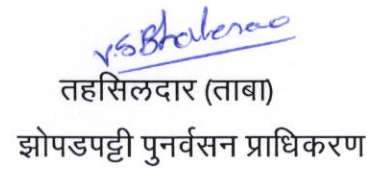 V.S.Bhalerao
तहसिलदार (ताबा)
झोपडपट्टी पुनर्वसन प्राधिकरण